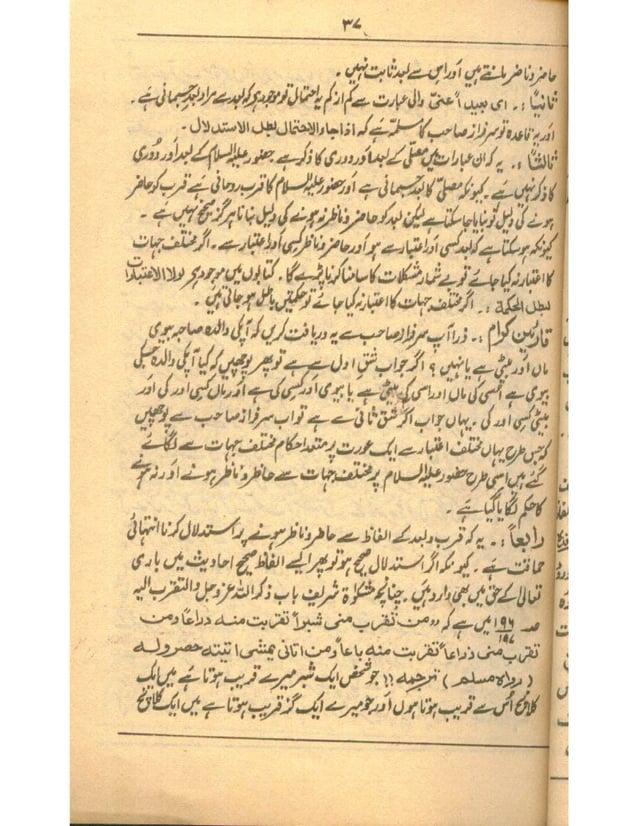 ۳۷
حاضر و ناظر مانتے ہیں اور اس سے بعد ثابت نہیں۔
ثانیاً :۔ ای بعید اعنی والی عبارت سے کم از کم یہ احتمال تو موجود ہے کہ بعد سے مراد بعد جسمانی ہے۔
اور یہ قاعدہ تو سرفراز صاحب کا مسلمّ ہے کہ اذا جاء الاحتمال بطل الاستدلال۔
ثالثاً :۔ یہ کہ ان عبارات میں مصلّی کے بعد اور دوری کا ذکر ہے حضور علیہ السلام کے بعد اور دوری
کا ذکر نہیں ہے۔ کیونکہ مصلیّ کا بعد جسمانی ہے اور حضور علیہ السلام کا قرب روحانی ہے قرب کو حاضر
ہونے کی دلیل تو بنایا جا سکتا ہے لیکن بعد کو حاضر و ناظر نہ ہونے کی دلیل بنانا ہرگز صحیح نہیں ہے۔
کیونکہ ہو سکتا ہے کہ بعد کسی اور اعتبار سے ہو اور حاضر و ناظر کسی اور اعتبار سے۔ اگر مختلف جہات
کا اعتبار نہ کیا جائے تو بے شمار مشکلات کا سامنا کرنا پڑے گا۔ کتابوں میں موجود ہے لولا الاعتبارات
لبطل الحکمة :۔ اگر مختلف جہات کا اعتبار نہ کیا جائے تو حکمتیں باطل ہو جاتی ہیں۔
قارئین کرام :۔ ذرا آپ سرفراز صاحب سے یہ دریافت کریں کہ آپکی والدہ صاحبہ بیوی
ماں اور بیٹی ہے یا نہیں؟ اگر جواب شق اول سے ہے تو پھر پوچھیں کہ کیا آپکی والدہ جسکی
بیوی ہے اسی کی ماں اور اسی کی بیٹی ہے یا بیوی اور کسی کی ہے اور ماں کسی اور کی اور
بیٹی کسی اور کی۔ یہاں جواب اگر شق ثانی سے ہے تو اب سرفراز صاحب سے پوچھیں
کہ جس طرح یہاں مختلف اعتبار سے ایک عورت پر متعدد احکام مختلف جہات سے لگائے
گئے ہیں اسی طرح حضور علیہ السلام پر مختلف جہات سے حاظر و ناظر ہونے اور نہ ہونے
کا حکم لگایا گیا ہے۔
رابعاً :۔ یہ کہ قرب و بعد کے الفاظ سے حاضر و ناظر ہونے پر استدلال کرنا انتہائی
حماقت ہے۔ کیونکہ اگر استدلال صحیح ہو تو پھر ایسے الفاظ صحیح احادیث میں باری
تعالیٰ کے حق میں بھی وارد ہیں۔ چنانچہ مشکوٰة شریف باب ذکر اللہ عز وجل والتقرب الیہ
صد ۱۹۶/۱۹۷ میں ہے کہ ،،من تقرب منی شبراً تقربت منہ ذراعاً ومن
تقرب منی ذراعاً تقربت منہ باعاً ومن اتانی یمشی اتیتہ ھرولہ
(رواہ مسلم) ترجمہ ؛؛ جو شخص ایک شبر میرے قریب ہوتا ہے میں ایک
کلاچ اُس سے قریب ہوتا ہوں اور جو میرے ایک گز قریب ہوتا ہے میں ایک کلاچ